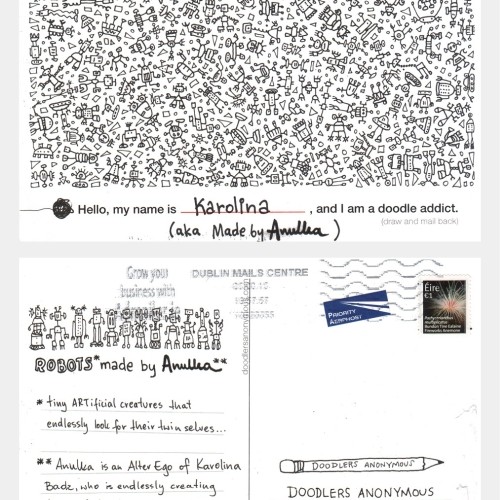 Hello, my name is Karolina, and I am a doodle addict.
(draw and mail back)
(aka Made by Anulka)
Grow your
business with
DUBLIN MAILS CENTRE
PRIORITY
AERPHOST
Éire
€1
ROBOTS* made by Anulka**
* tiny ARTificial creatures that
endlessly look for their twin selves...
** Anulka is an Alter Ego of Karolina
who is endlessly creating
DOODLERS ANONYMOUS
DOODLERS ANONYMOUS